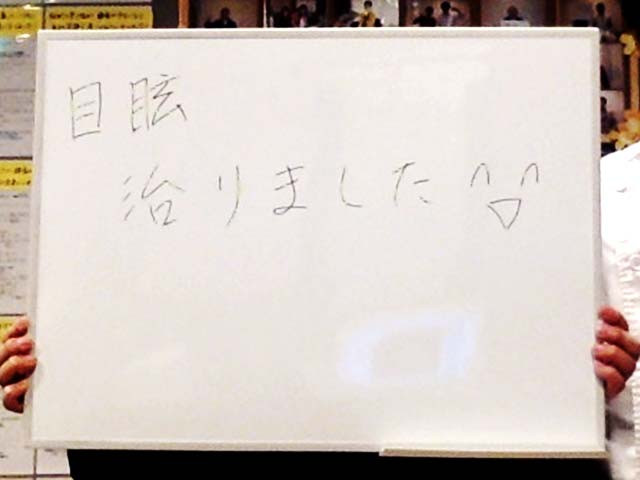 目眩
治りました^▽^